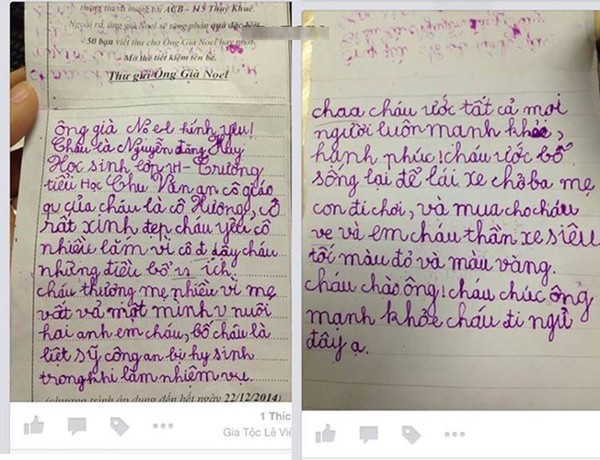 thông tra và tương tại ACB - 115 Thụy Khuê.
Ngoài ra, ứng già Noel sẽ tặng phần quà đặc biệt
50 bạn viết thư cho Ông Già Noel hay nhất.
Mở thẻ tiết kiệm tên bé.
Thư gửi Ông Già Noel
ông già No el kính yêu!
Cháu là Nguyễn đăng Huy
Học sinh lớp 1H - Trường
tiểu Học Chu Văn an cô giáo
của cháu là cô Hương, cô
rất xinh đẹp cháu yêu cô
nhiều lắm vì cô dậy cháu
những điều bổ ích
cháu thương mẹ nhiều vì mẹ
vất vả một mình nuôi
hai anh em cháu, bố cháu là
liệt sỹ công an bị hy sinh
trong khi làm nhiệm vụ.
(chương trình áp dụng đến hết ngày 22/12/2014)
1 Thíc
Gia Tộc Lê Viê
cháu ước tất cả mọi
người luôn mạnh khỏe,
hạnh phúc! cháu ước bố
sống lại để lái xe chở ba mẹ
con đi chơi, và mua cho cháu
ve và em cháu thần xe siêu
tốc màu đỏ và màu vàng.
cháu chào ông! cháu chúc ông
mạnh khỏe cháu đi ngủ
đây ạ.